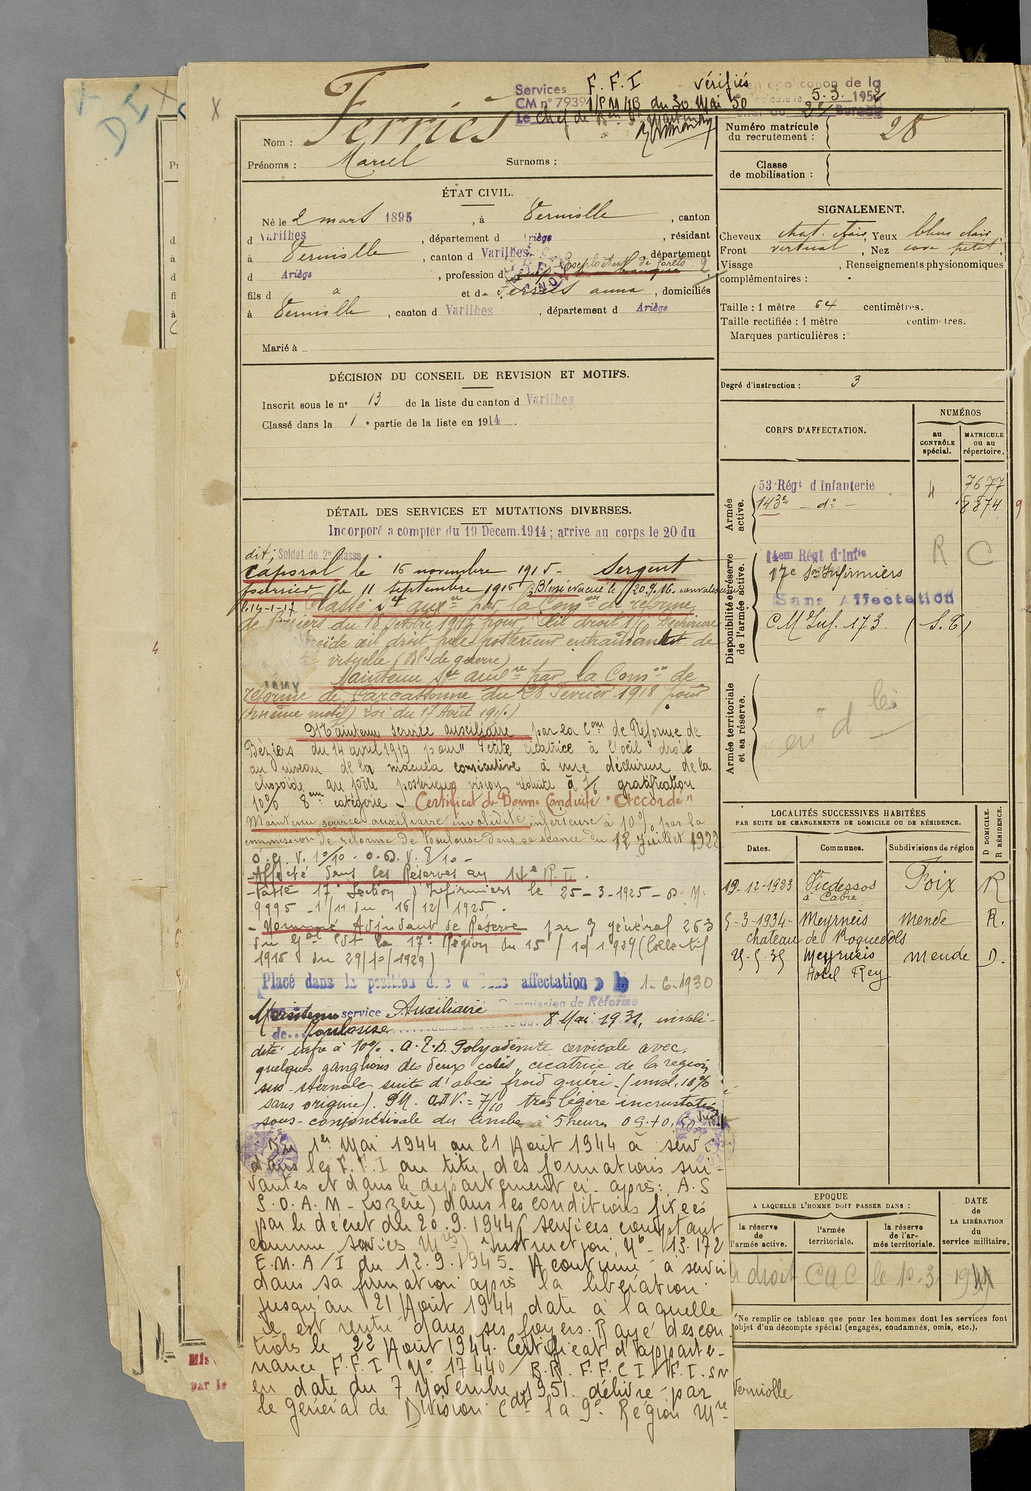 Services F. F. I vérifiés
CM n° 7939 1/PM/4B du 30 Mai 50
Le Chef de
5.3. 1952
Nom : Ferriès
Prénoms : Marcel Surnoms :
ÉTAT CIVIL.
Né le 2 mars 1895, à Verniolle, canton
d Varilhes, département d Ariège, résidant
à Verniolle, canton d Varilhes, département
d Ariège, profession d
fils d et de anna, domiciliés
à Verniolle, canton d Varilhes, département d Ariège
Marié à
DÉCISION DU CONSEIL DE REVISION ET MOTIFS.
Inscrit sous le n° 13 de la liste du canton d Varilhes
Classé dans la 1e partie de la liste en 1914.
DÉTAIL DES SERVICES ET MUTATIONS DIVERSES.
Incorporé a compter du 19 Decem.1914; arrive au corps le 20 du
dit; Soldat de 2e classe
Caporal le 16 novembre 1915 - Sergent
fourrier le 11 septembre 1916 Blessé évacué le 20.9.16.
Classé par la Comon de réforme
de Béziers du 18 octobre 1917 pour œil droit 1/10 déchirure
choroïde œil droit pôle postérieur entraînant
(Bl. de guerre)
Maintenu Sce auxre par la Comon de
réforme de Carcassonne du 28 Février 1918 pour
(même motif) Loi du 17 Août 1915)
Maintenu service auxiliaire par la Con de Réforme de
Béziers du 14 avril 1919 pour "Petite cicatrice à l'œil droit
au niveau de la macula consécutive à une déchirure de la
choroïde au pôle postérieur vision réduite à gratification
10% 8eme catégorie - Certificat de Bonne Conduite "Accordé"
Maintenu service auxiliaire invalidité inférieure à 10% par la
commission de réforme de Toulouse dans sa séance du 12 juillet 1922
O. G. V. 10/10 . O. D. V. 8/10 -
Affecté dans les Réserves au 14e R.I.
Passé 17e Section d'Infirmiers le 25-3-1925 - D. M.
9995 - 1/11 du 16/12/1925.
- Nommé Adjudant de Réserve par général 263
du Gal Cdt la 17e Région du 15/10/1929 (Collectif
1915 du 29/10/1929)
Placé dans la position dite « Sans affectation » le 1-6-1930
Maintenu service Auxiliaire Commission de Réforme
de Toulouse du 8 Mai 1931, invali-
dité infre à 10%. A.E.D. Polyadénite cervicale avec
quelques ganglions des deux côtés, cicatrice de la région
sus-sternale suite d'abcès froid guéri. (inval. 10%
sans origine). P.M. ODV = 7/10 très légère incrustation
sous-conjonctivale du limbe à 5 heures OG. 10/10
Du 1er Mai 1944 au 21 Août 1944 à servi
dans les F.F.I au titre des formations sui-
vantes et dans le département ci-après: A.S
(S.O.A.M - Lozère) dans les conditions fixées
par le décret du 20.9.1944 (services comptant
comme services Mres) instruction N° 13.172
E.M.A/1 du 12.9.1945. A continué à servir
dans sa formation après la libération
jusqu'au 21 Août 1944 date à laquelle
il est rentré dans ses foyers. Rayé des con
trôles le 22 Août 1944. Certificat d'apparte-
nance F.F.I N° 17440/ R.R. F.F.C.I/F.I. SN
en date du 7 Novembre 1951 délivré par
le général de Division Cdt la 9e Région Mre
Numéro matricule
du recrutement : 28
Classe
de mobilisation :
SIGNALEMENT.
Cheveux chat. clair, Yeux bleus clair
Front vertical, Nez cave petit,
Visage , Renseignements physionomiques
complémentaires :
Taille : 1 mètre 64 centimètres.
Taille rectifiée : 1 mètre centimètres.
Marques particulières :
Degré d'instruction : 3
CORPS D'AFFECTATION.
NUMÉROS
au CONTRÔLE spécial.
MATRICULE ou au répertoire.
Armée active.
53 Régt d Infanterie 4 7677
143e - do - 8874
Disponibilité et réserve de l'armée active.
14em Régt d'Infie R C
17e Son Infirmiers
Sans Affectation
C M Inf. 173. (S.E)
Armée territoriale et sa réserve.
LOCALITÉS SUCCESSIVES HABITÉES
PAR SUITE DE CHANGEMENTS DE DOMICILE OU DE RÉSIDENCE.
Dates. Communes. Subdivisions de région D DOMICILE. R RÉSIDENCE.
19-12-1933 Vicdessos Foix R
à Cabre
5-3-1934- Meyrueis Mende R.
chateau de Roquedols
25-5-35 Meyrueis Mende D.
Hotel Rey
EPOQUE
A LAQUELLE L'HOMME DOIT PASSER DANS :
DATE DE LA LIBÉRATION du service militaire.
la réserve de l'armée active.
l'armée territoriale.
la réserve de l'armée territoriale.
à droit CAC le 10-3 1944
Ne remplir ce tableau que pour les hommes dont les services font
l'objet d'un décompte spécial (engagés, condamnés, omis, etc.).
Verniolle